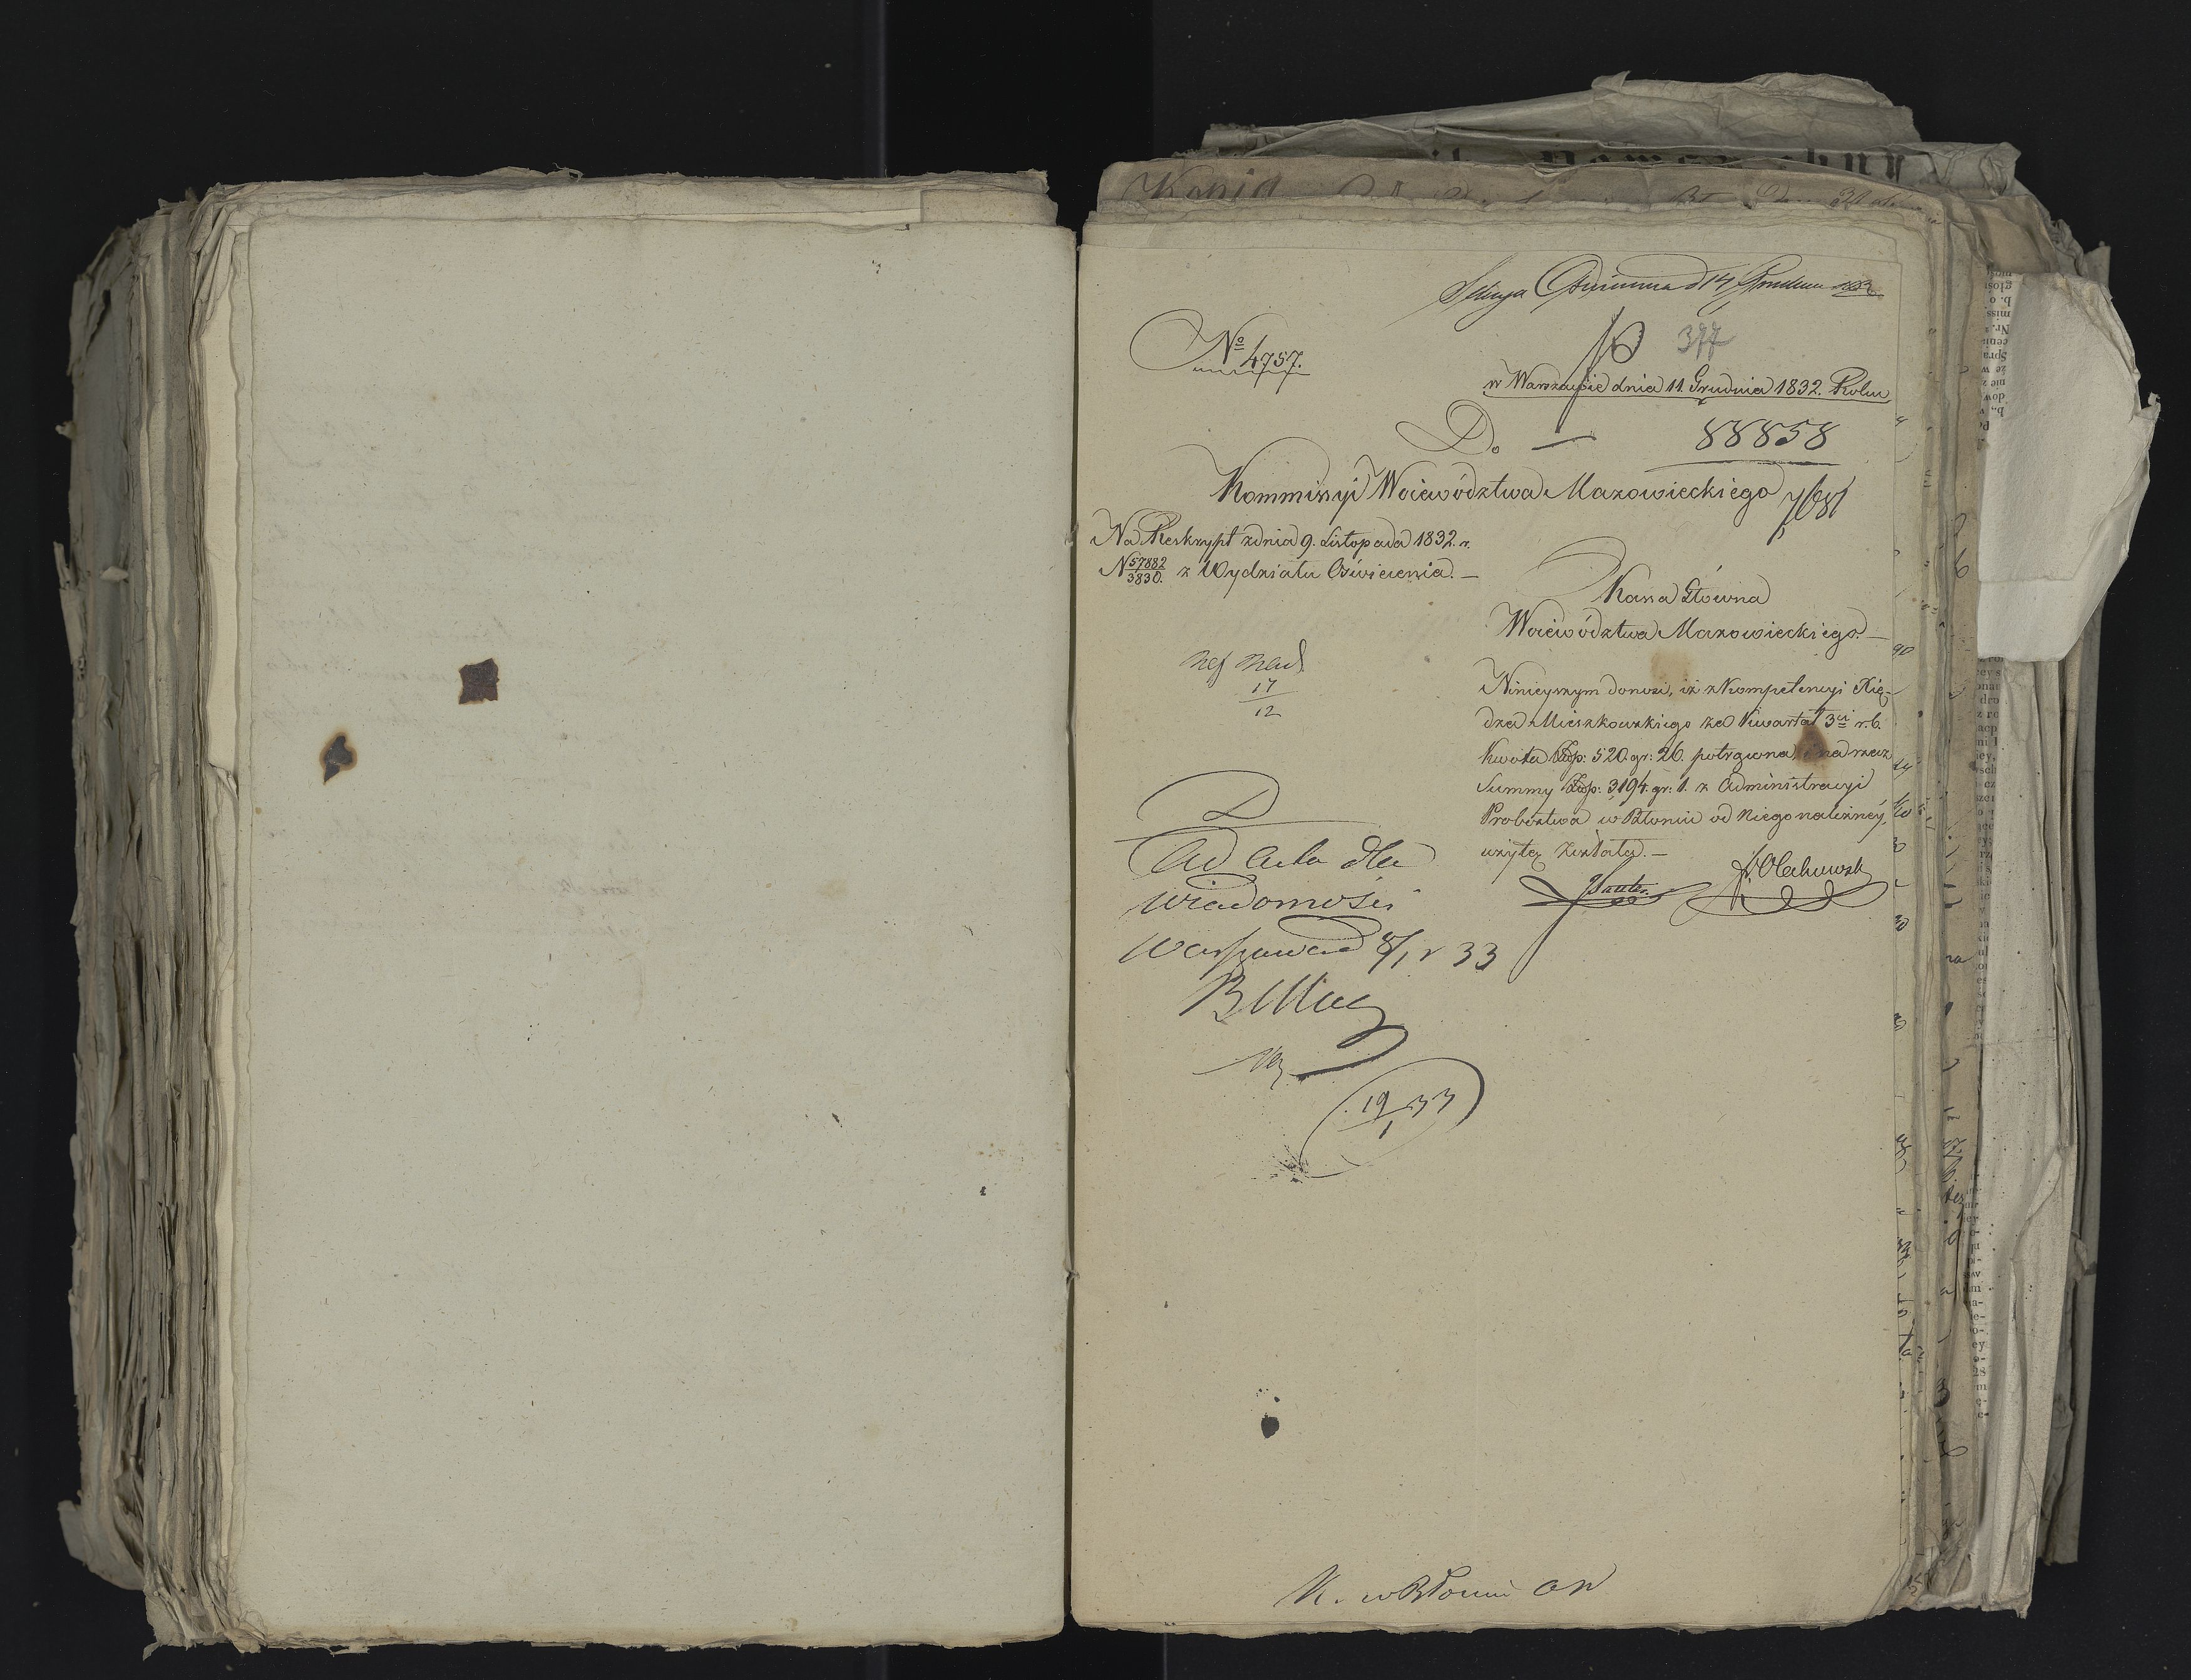 Sekcya d 14 Grudnia 1832
377
Nº 4757.
w Warszawie dnia 11. Grudnia 1832. Roku
Do —
88858
7681
Kommissyi Woiewództwa Mazowieckiego
Na Reskrypt z dnia 9. Listopada 1832. r.
N 57882/3830. z Wydziału Oświecenia. —
Kassa Główna
Woiewództwa Mazowieckiego. —
Ninieyszym donosi, iż z Kompetencyi Xię-
dza Mieszkowskiego za Kwartał 3ci r. b.
kwota Złp: 520 gr: 26. potrącona, i na rzecz
Summy Złp: 3,194. gr: 1. z Administracyi
Probostwa w Błoniu od Niego należney,
użytą została. —
17
12
Ad acta dla
wiadomości
Warszawa d 8/1 r 33
19/1 33
K. w Błoniu